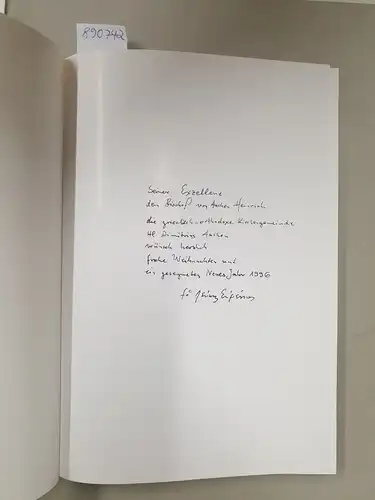 890742
Seiner Exzellenz
den Bischof von Aachen Heinrich
die griechisch-orthodoxe Kirchengemeinde
Hl Dimitrios Aachen
wünsch herzlich
frohe Weihnachten und
ein gesegnetes Neues Jahr 1996